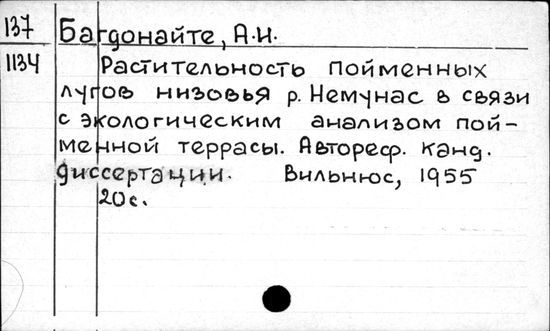 137
Багдонайте, А.И.
1134
Растительность пойменных
лугов низовья р. Немунас в связи
с экологическим анализом пой-
менной террасы. Автореф. канд.
диссертации. Вильнюс, 1955
20с.